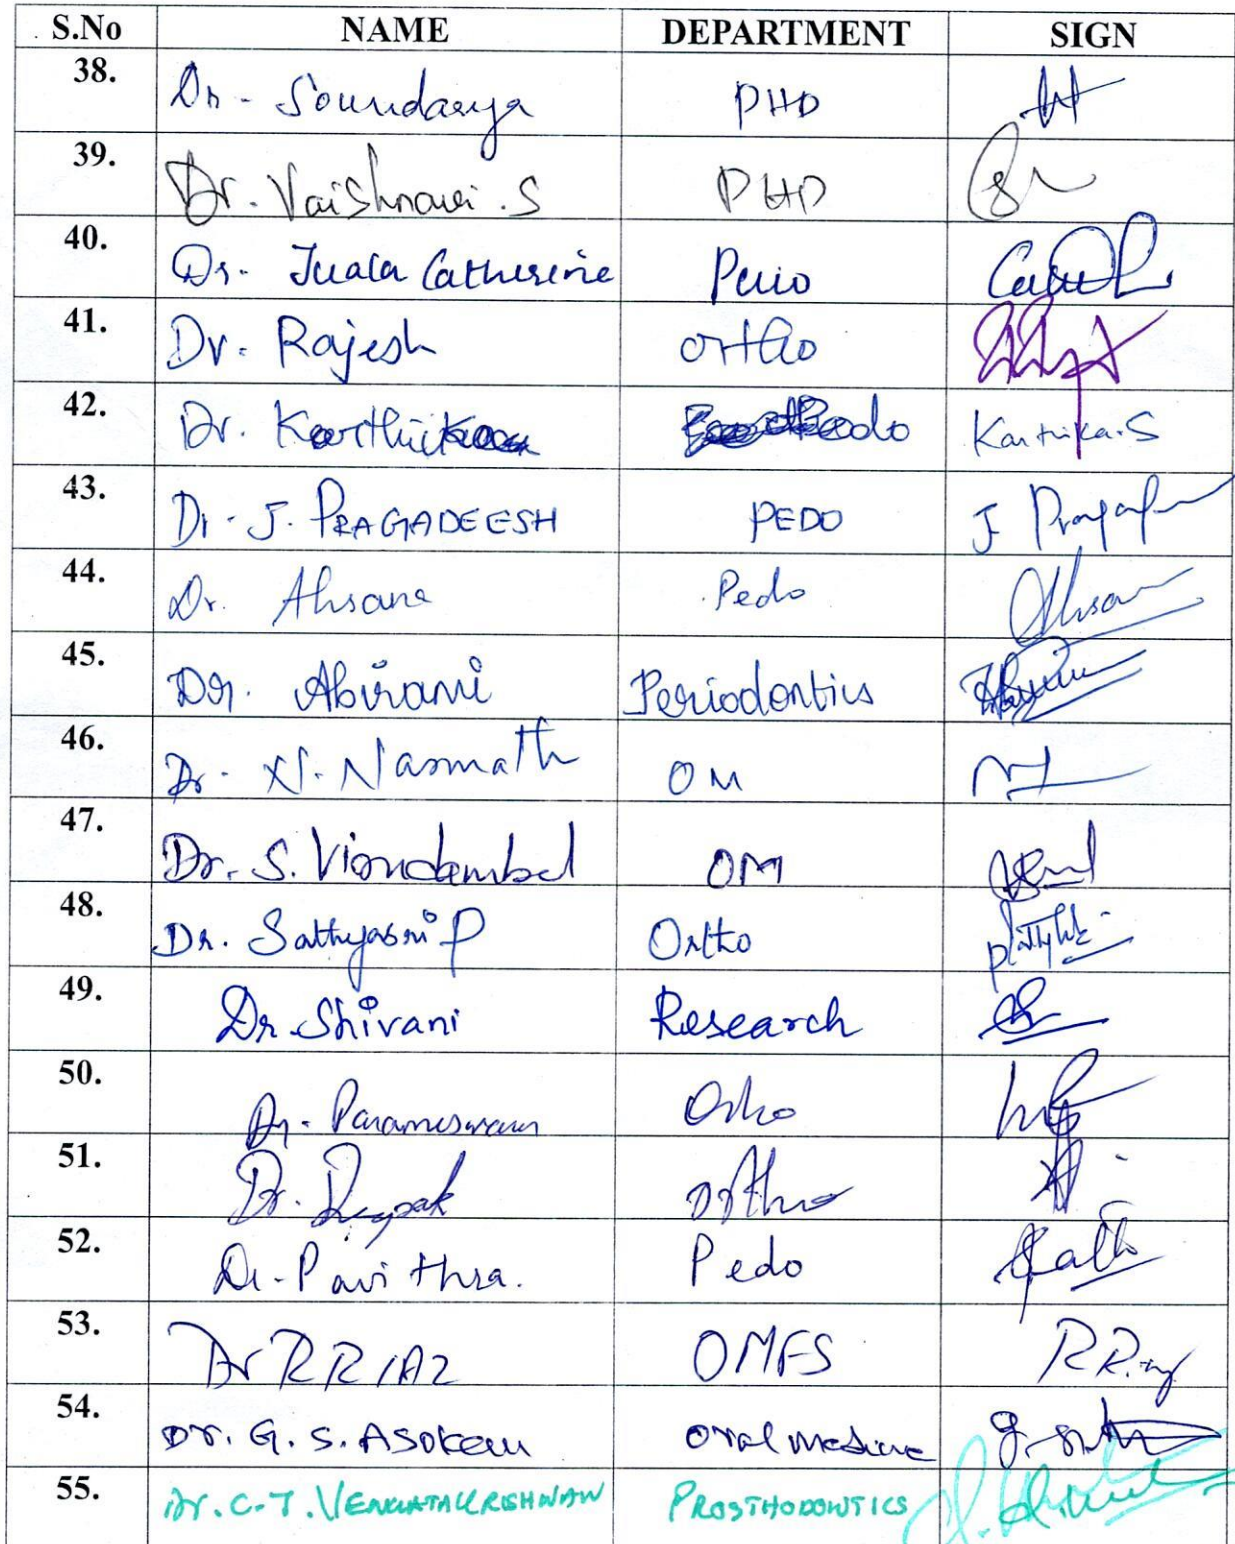 S.No NAME DEPARTMENT SIGN
38. Dr. Soundarya PHD
39. Dr. Vaishnavi .S PHD
40. Dr. Juala Catherine Perio
41. Dr. Rajesh ortho
42. Dr. Karthika Pedo Karthika.S
43. Dr. J. PRAGADEESH PEDO J
44. Dr. Ahsana Pedo
45. Dr. Abirami Periodontics
46. Dr. N. Nasmath OM
47. Dr. S. OM
48. Dr. Sathyasri P Ortho
49. Dr Shivani Research
50. Dr. Parameswaran Ortho
51. Dr. Deepak ortho
52. Dr. Pavithra. Pedo
53. Dr R RIAZ OMFS
54. Dr. G. S. ASOKAN Oral Medicine
55. Dr. C.J. VENKATAKRISHNAN PROSTHODONTICS